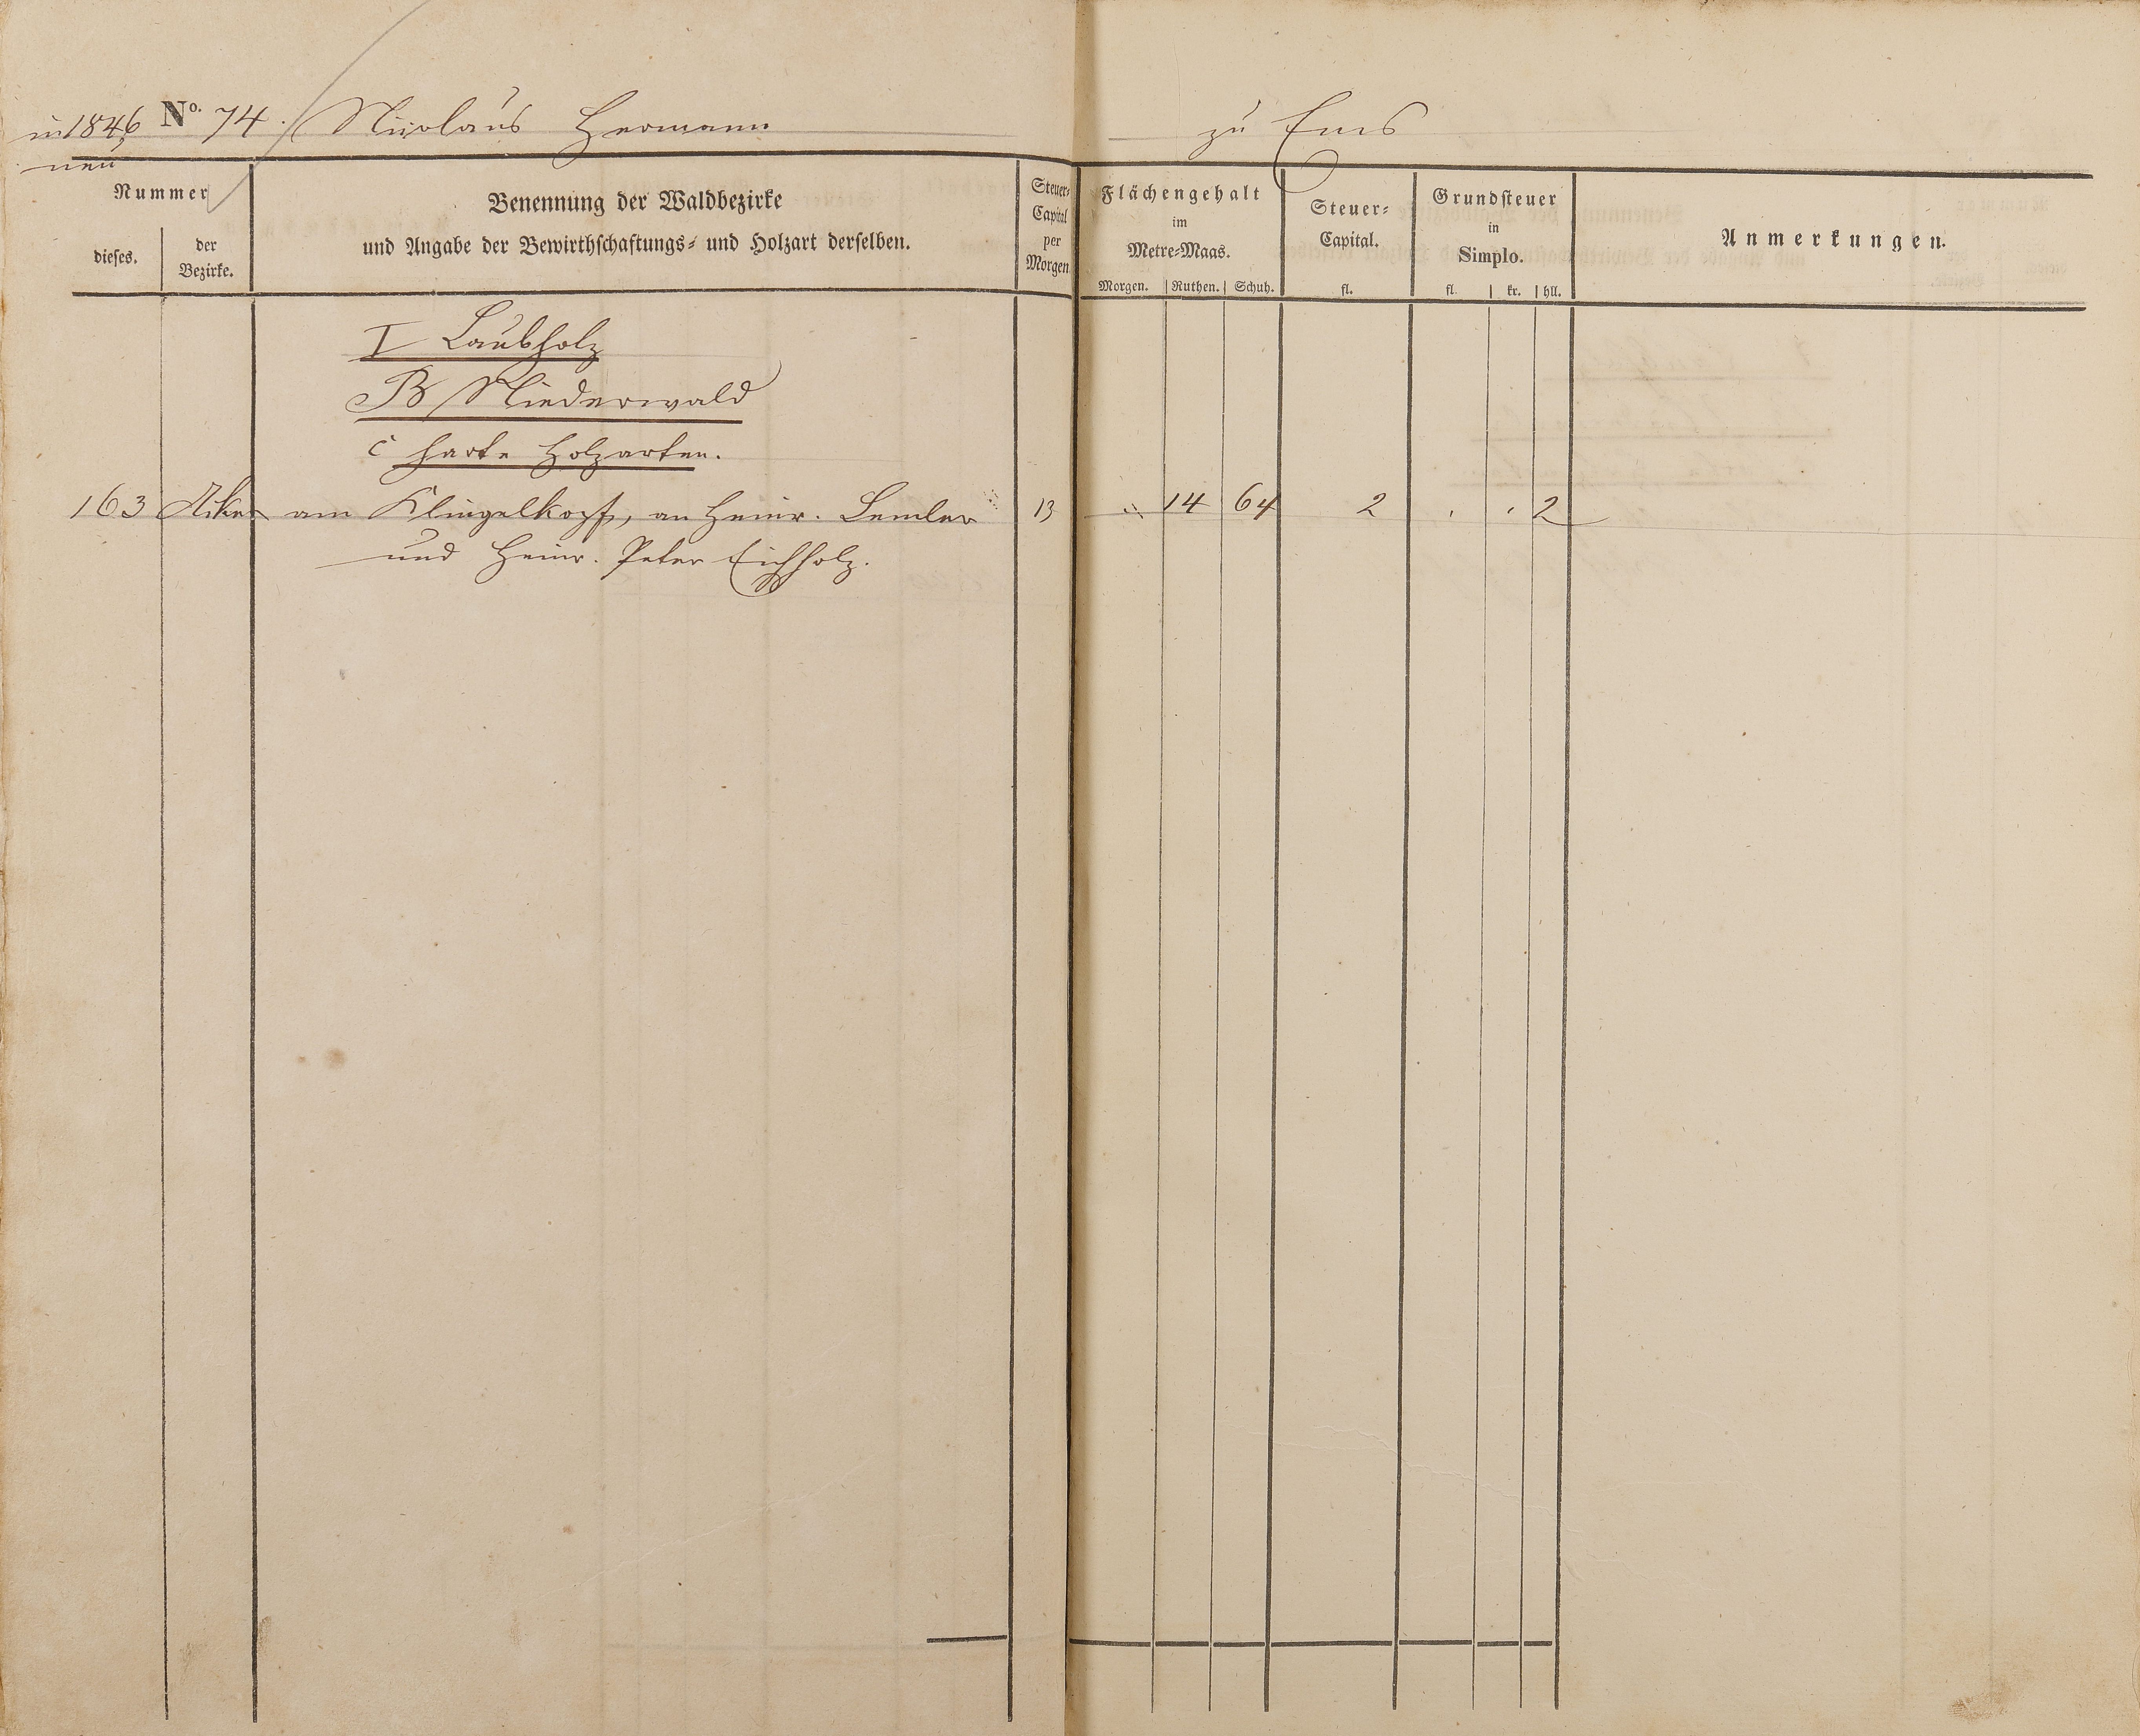 in 1846 No. 74. Nicolaus Hermann zu Ems
neu
Nummer
dieses.
der
Bezirke.
Benennung der Waldbezirke
und Angabe der Bewirthschaftungs- und Holzart derselben.
Steuer-
Capital
per
Morgen.
Flächengehalt
im
Metre-Maas.
Morgen. Ruthen. Schuh.
Steuer-
Capital.
fl.
Grundsteuer
in
Simplo.
fl. kr. hll.
Anmerkungen.
I Laubholz
B Niederwald
c harte Holzarten.
163 am Klingelkopf, an Heinr. Lemler 13 14 64 2 2
und Heinr. Peter Eichholz.